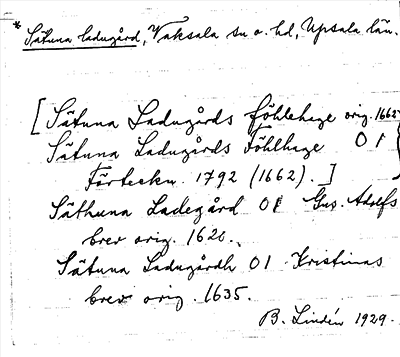 * Sätuna ladugård, Vaksala sn o. hd, Upsala län.
[Sätuna Ladugårds föhlehage orig. 1662
Sätuna Ladugårds Föhlhage O 1 }
Förteckn. 1792 (1662).]
Säthuna Ladegård O1 Gus. Adolfs
brev orig. 1620.
Sätuna Ladugårdh O1 Kristinas
brev orig. 1635.
B. Lindén 1929.